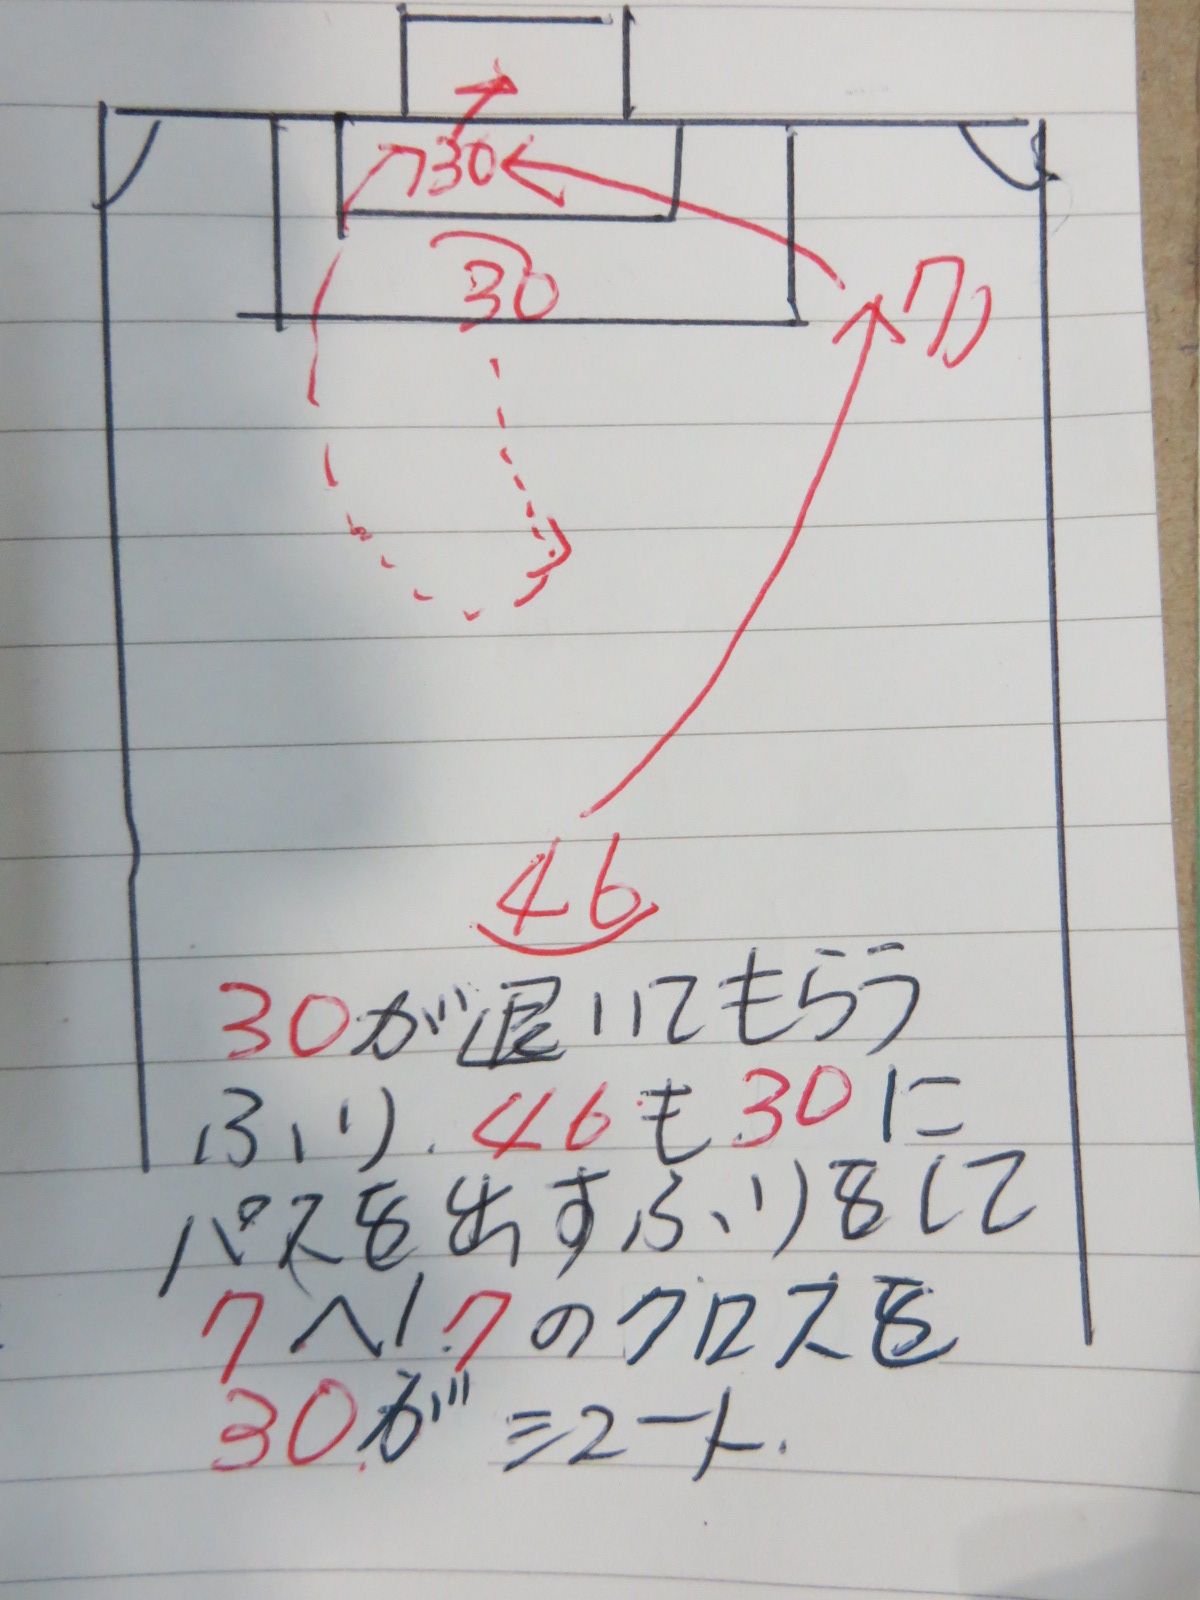 30
30
7
46
30が退いてもらう
ふり.46も30に
パスを出すふりをして
7へ!7のクロスを
30がシュート.